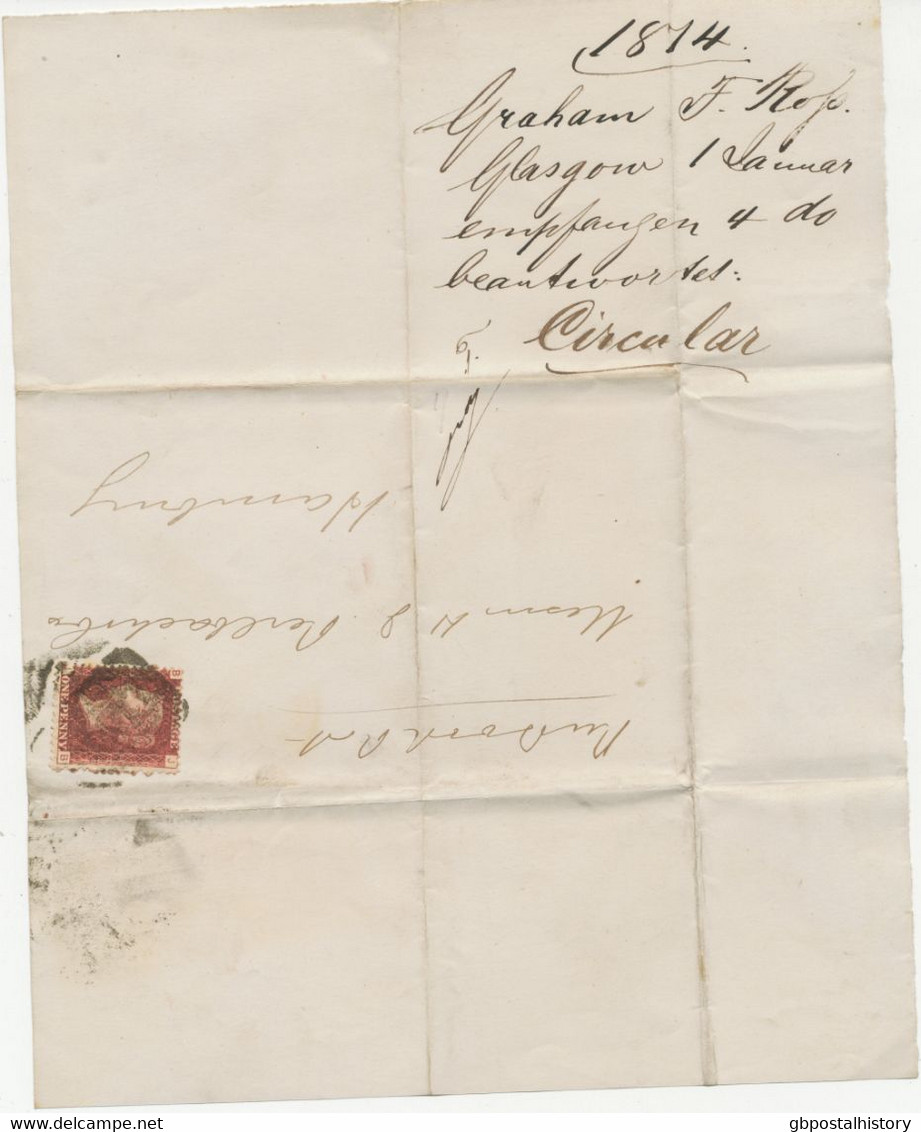 1874.
Graham F. Ross.
Glasgow 1 Januar
empfangen 4 do
beantwortet:
Circular
Hamburg
Messrs H J
POSTAGE
ONE PENNY
B J
J B
© www.delcampe.net
gbpostalhistory